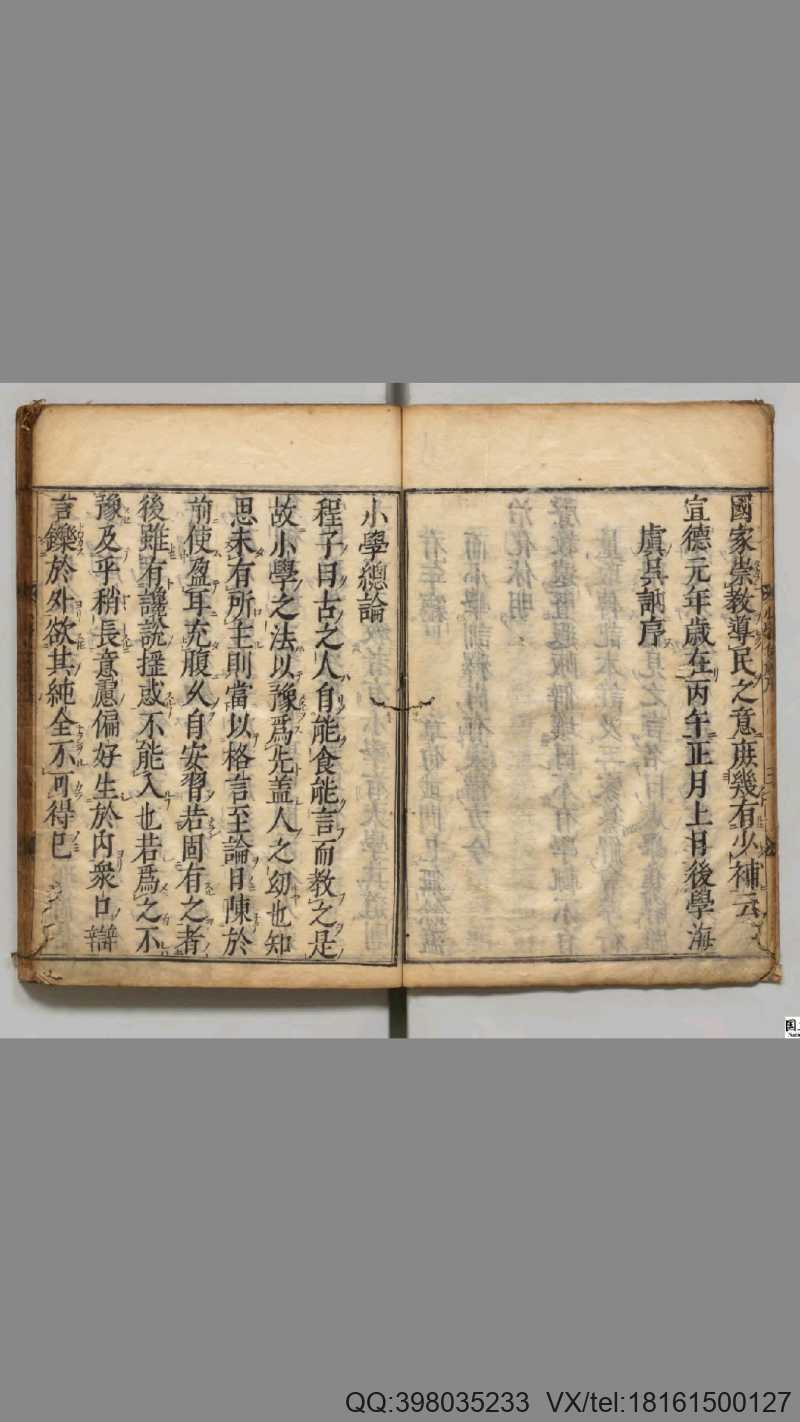 國家崇教導民之意庻幾有少補云
宣德元年歲在丙午正月上日後學海
虞吳訥序
小學總論
程子曰古之人自能食能言而教之是
故小學之法以豫爲先盖人之幼也知
思未有所主則當以格言至論日陳於
前使盈耳充腹久自安習若固有之者
後雖有讒說揺惑不能入也若爲之不
豫及乎稍長意慮偏好生於内衆口辯
言鑠於外欲其純全不可得已
国立
QQ:398035233 VX/tel:18161500127